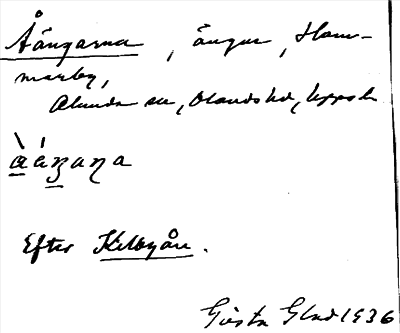 Åängarna, ängar, Ham-
marby,
Alunda sn, Olands hd, Uppsala
ààŋaɳa
Efter Kilbyån.
Gösta Glad 1936